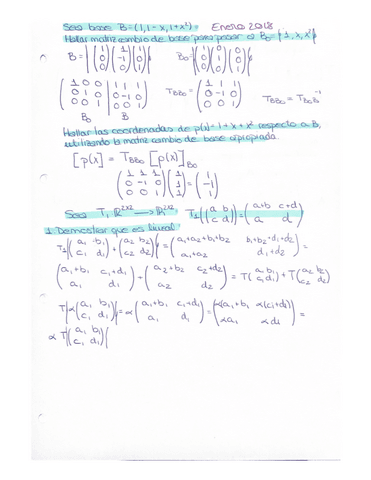 Sea base B = (1, 1 - x, 1 + x²) = Enero 2018
Hallar matriz cambio de base para pasar a B₀ = {1, x, x²}
B = {(1 0 0) (1 -1 0) (1 0 1)} B₀ = {(1 0 0) (0 1 0) (0 0 1)}
(1 0 0 | 1 1 1
0 1 0 | 0 -1 0
0 0 1 | 0 0 1)
B₀ B
T_BB₀ = (1 1 1
0 -1 0
0 0 1)
T_BB₀ = T_B₀B⁻¹
Hallar las coordenadas de p(x) = 1 + x + x² respecto a B,
utilizando la matriz cambio de base apropiada
[p(x)] = T_BB₀ [p(x)]_B₀
(1 1 1
0 -1 0
0 0 1) (1 1 1) = (1 -1 1)
Sea T₁ ℝ²ˣ² → ℝ²ˣ² T₁((a b c d)) = (a+b c+d
a d)
1. Demostrar que es lineal
T₁{(a₁ b₁ c₁ d₁) + (a₂ b₂ c₂ d₂)} = (a₁+a₂+b₁+b₂ b₁+b₂+d₁+d₂
a₁+a₂ d₁+d₂) =
(a₁+b₁ c₁+d₁
a₁ d₁) + (a₂+b₂ c₂+d₂
a₂ d₂) = T(a₁ b₁ c₁ d₁) + T(a₂ b₂ c₂ d₂)
T{α(a₁ b₁ c₁ d₁)} = α(a₁+b₁ c₁+d₁
a₁ d₁) = (α(a₁+b₁ α(c₁+d₁)
αa₁ αd₁) =
α T{(a₁ b₁ c₁ d₁)}